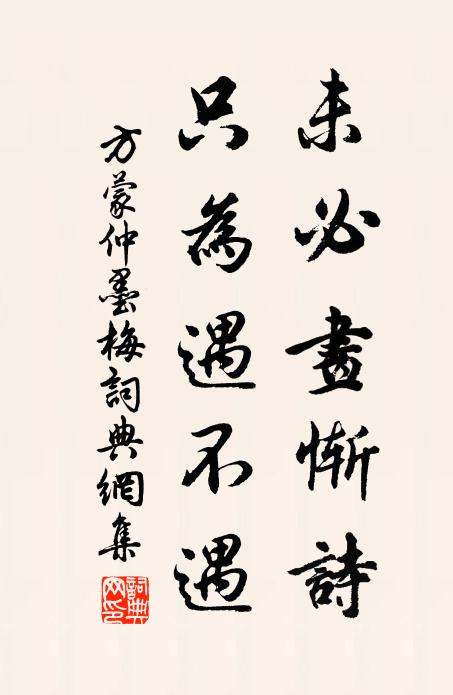 未必畫慚詩
只為遇不遇
方蒙仲墨梅詞典網集
詞典网印